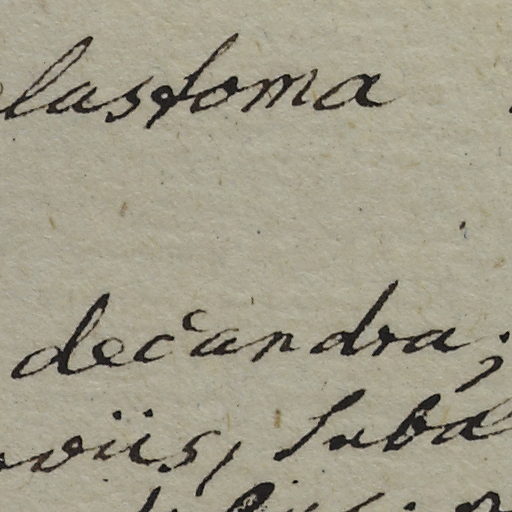 elastoma
decandra;
oviis, subal